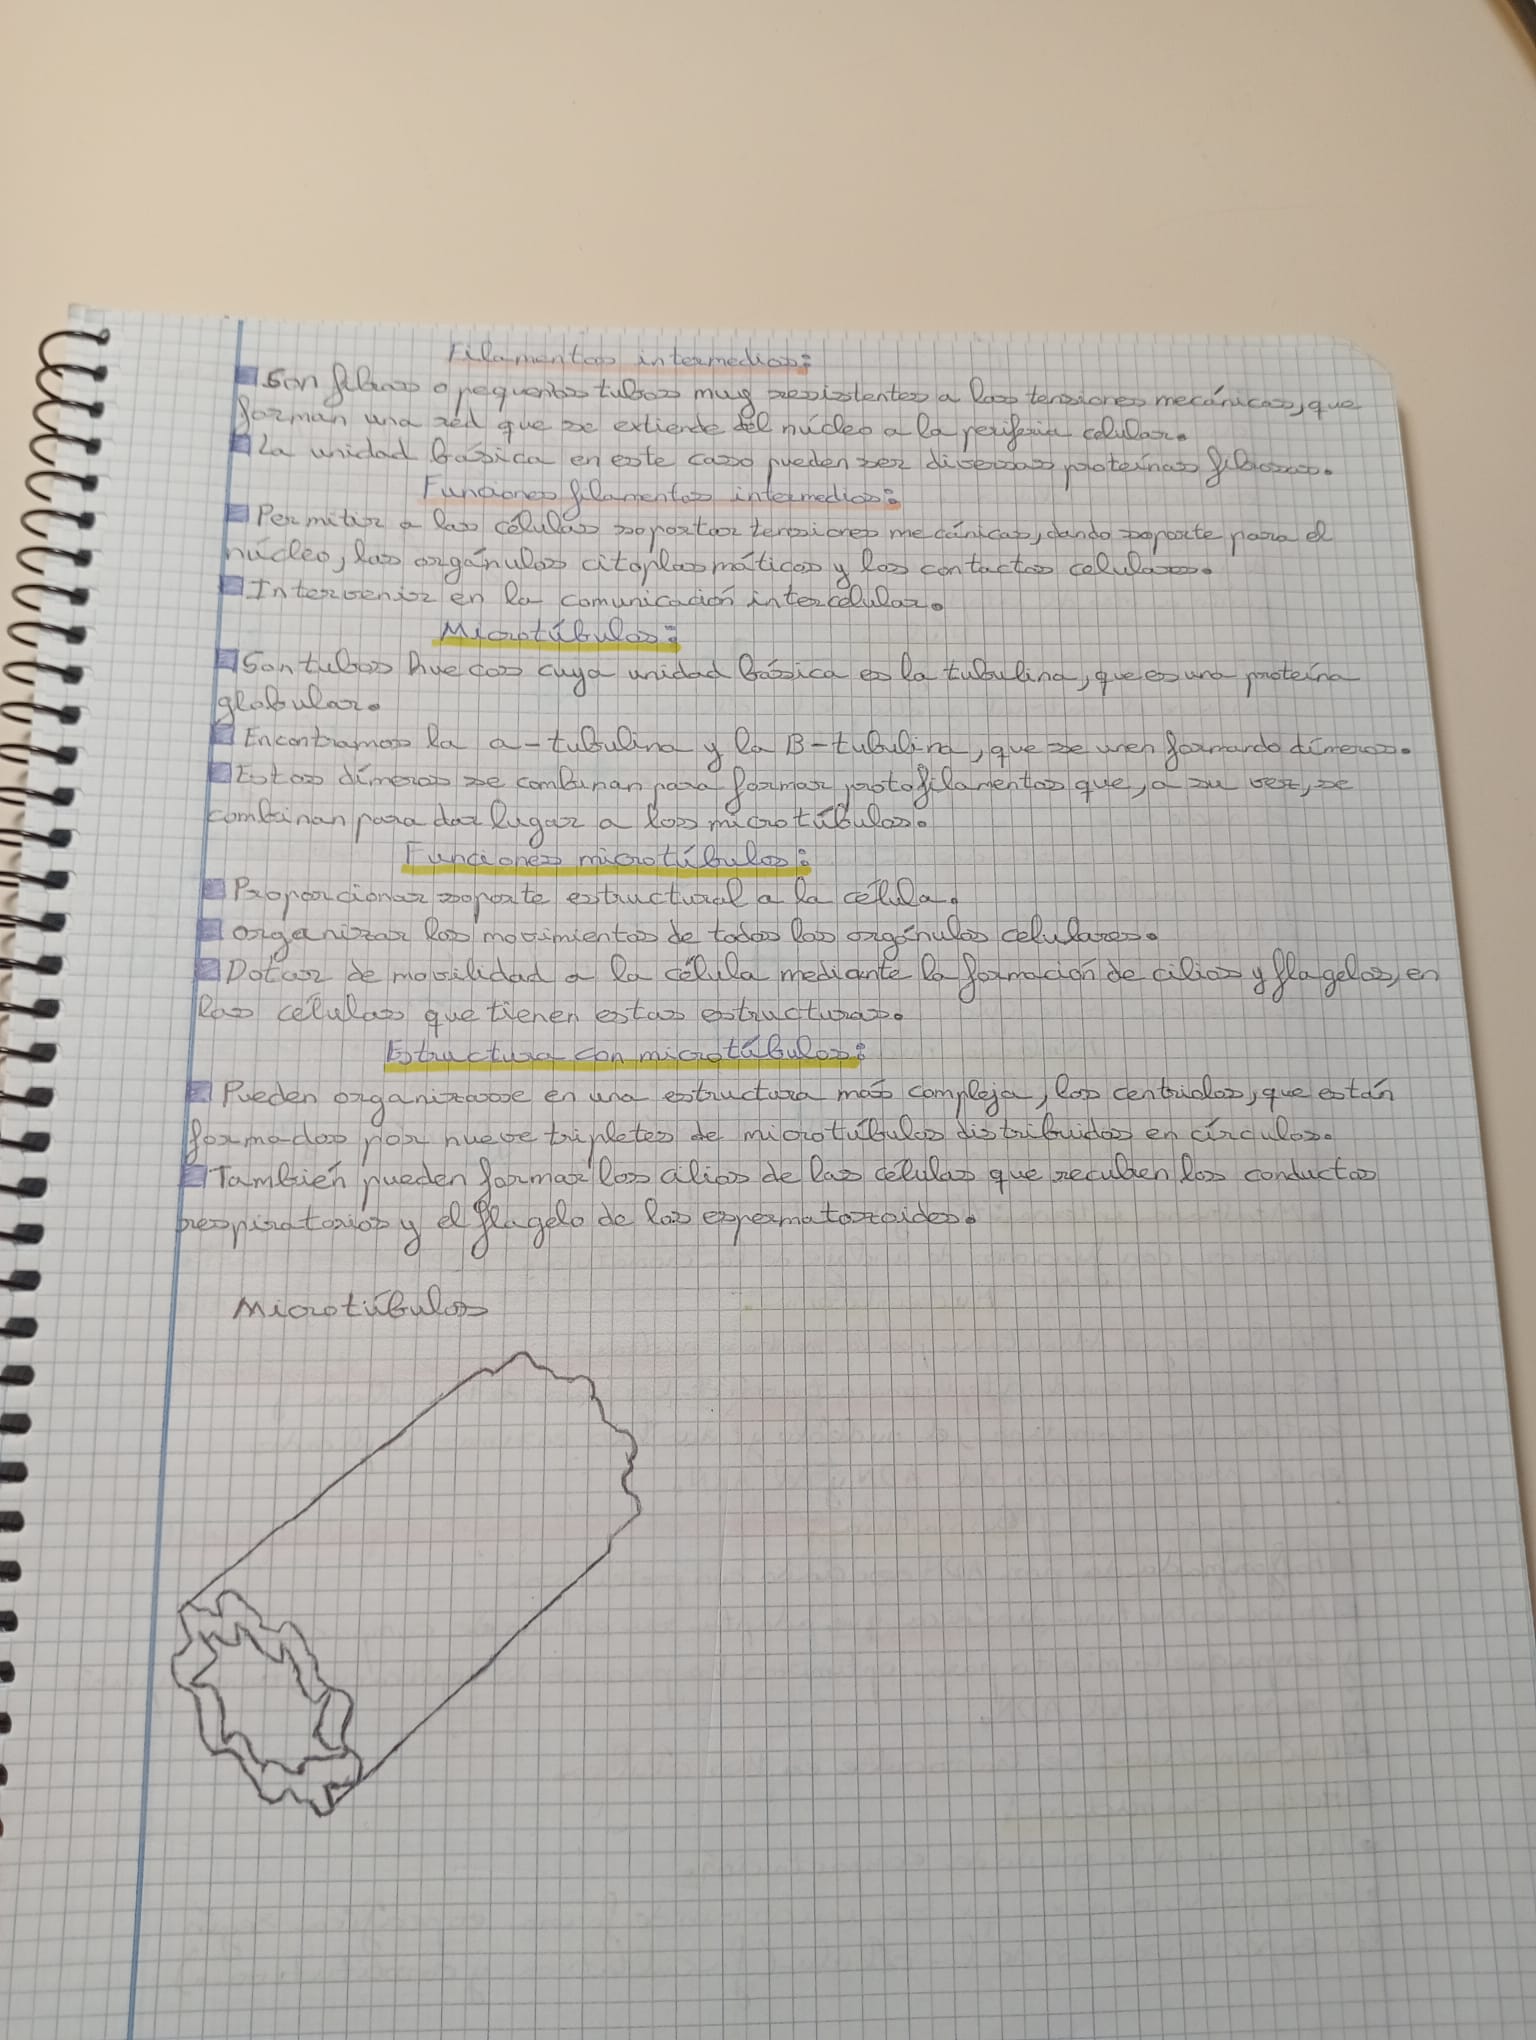 Filamentos intermedios:
Son fibras o pequeños tubos muy resistentes a las tensiones mecánicas, que
forman una red que se extiende del núcleo a la periferia celular.
La unidad básica en este caso pueden ser diversas proteínas fibrosas.
Funciones filamentos intermedios:
Permitir a las células soportar tensiones mecánicas, dando soporte para el
núcleo, los orgánulos citoplasmáticos y los contactos celulares.
Intervenir en la comunicación intercelular.
Microtúbulos:
Son tubos huecos cuya unidad básica es la tubulina, que es una proteína
globular.
Encontramos la a-tubulina y la B-tubulina, que se unen formando dímeros.
Estos dímeros se combinan para formar protofilamentos que, a su vez, se
combinan para dar lugar a los microtúbulos.
Funciones microtúbulos:
Proporcionar soporte estructural a la célula.
organizar los movimientos de todos los orgánulos celulares.
Dotar de movilidad a la célula mediante la formación de cilios y flagelos, en
las células que tienen estas estructuras.
Estructura con microtúbulos:
Pueden organizarse en una estructura más compleja, los centriolos, que están
formados por nueve tripletes de microtúbulos distribuidos en círculos.
También pueden formar los cilios de las células que recubren los conductos
respiratorios y el flagelo de los espermatozoides.
Microtúbulos